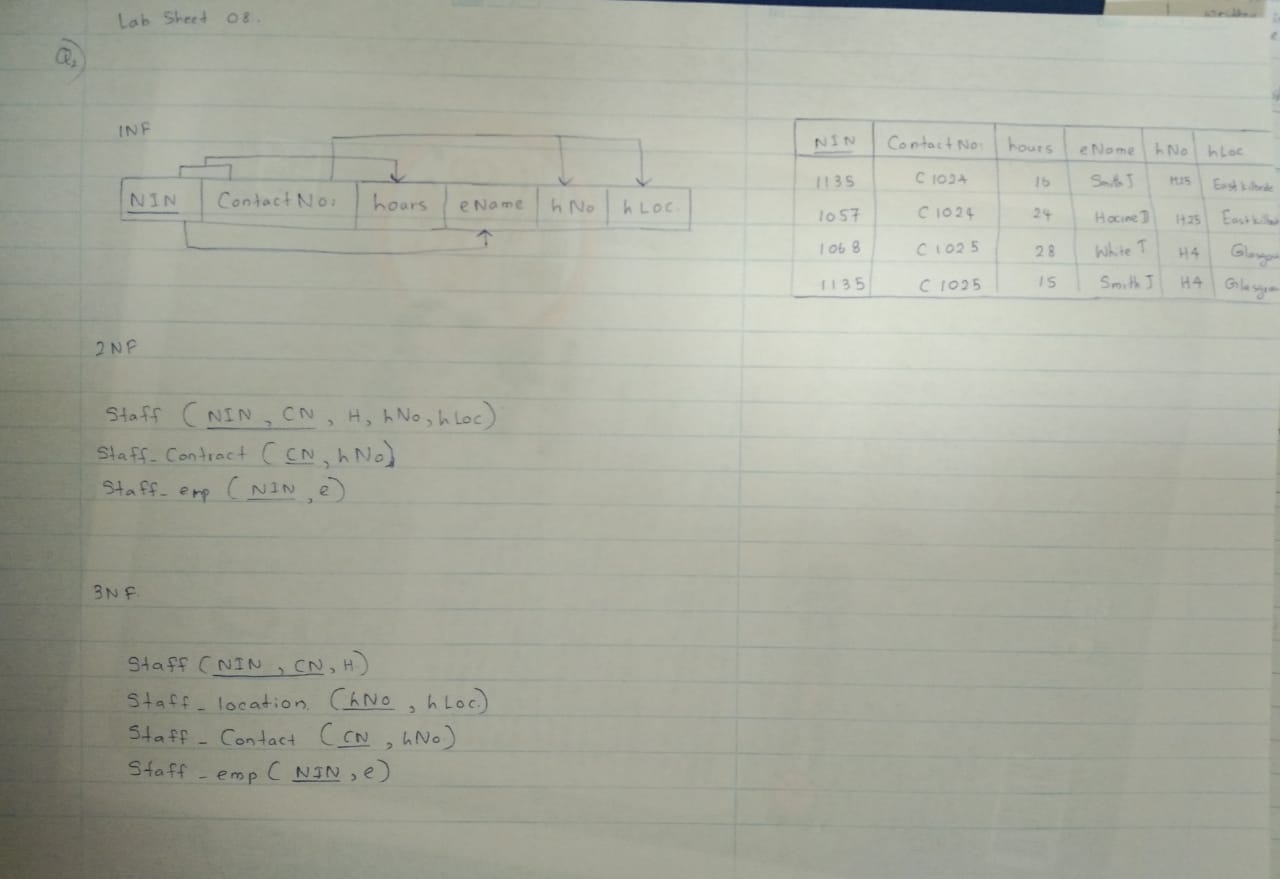 Lab Sheet 08.
Q2
1NF
NIN Contact No: hours eName hNo hLoc.
NIN Contact No: hours eName hNo hLoc
1135 C1024 16 Smith J H25
1057 C1024 24 Hocine D H25
1068 C1025 28 White T H4
1135 C1025 15 Smith J H4
2NF
Staff (NIN, CN, H, hNo, hLoc)
Staff_Contract (CN, hNo)
Staff_emp (NIN, e)
3NF
Staff (NIN, CN, H)
Staff_location (hNo, hLoc.)
Staff_Contact (CN, hNo)
Staff_emp (NIN, e)